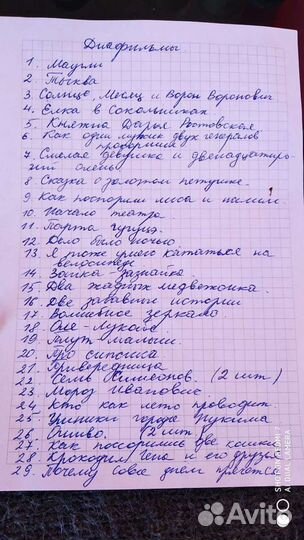 Диафильмы.
1. Маугли
2. Тыква
3. Солнце, Месяц и Ворон Воронович
4. Елка в Сокольниках
5. Княжна Дарья Ростовская
6. Как один мужик двух генералов
прокормил
7. Смелая девушка и двенадцатирогий олень
8 Сказка о золотом петушке.
9 Как поспорили лиса и налим
10. Начало театра.
11. Парта чудца.
12 Дело было ночью
13. Я тоже умею кататься на
велосипеде
14. Зайка-зазнайка.
15. Два жадных медвежонка.
16. Две забавные истории
17. Волшебное зеркало.
18. Оле-Лукойе
19. Плут малыш.
20. Про сипсика
21. Привередница
22. Семь Симеонов. (2 шт)
23. Мороз Иванович
24. Кто как лето проводит
25. Ученики герода
26. Огниво. (2 шт)
27. Как поссорились две кошки
28 Крокодил Гена и его друзья
29. Почему сова днем прячется
SHOT ON
AI DUAL CAMERA
Avito